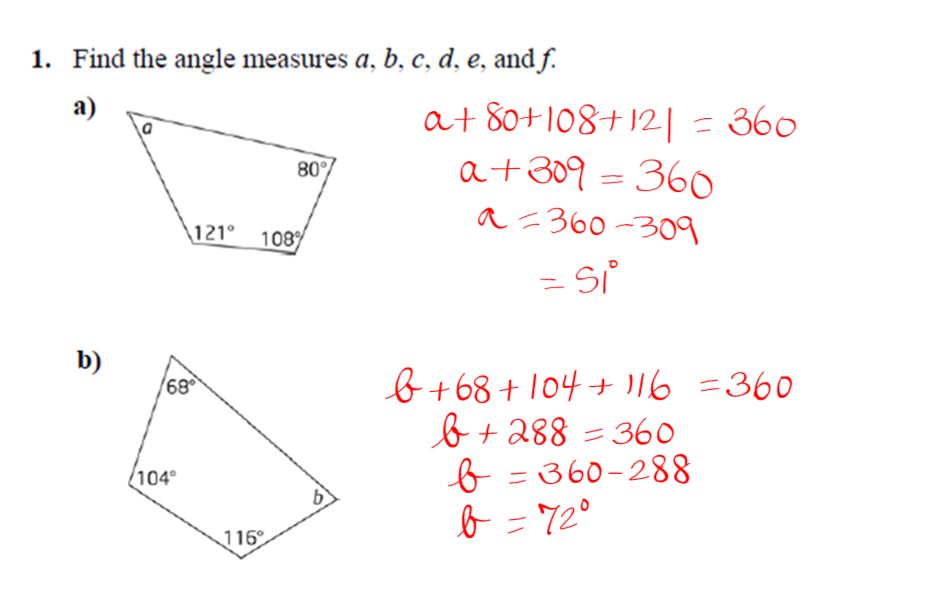 1. Find the angle measures a, b, c, d, e, and f.
a)
a
80°
121° 108°
a+80+108+121 = 360
a+309 = 360
a = 360-309
= 51°
b)
68°
104°
b
116°
b+68+104+116 = 360
b+288 = 360
b = 360-288
b = 72°